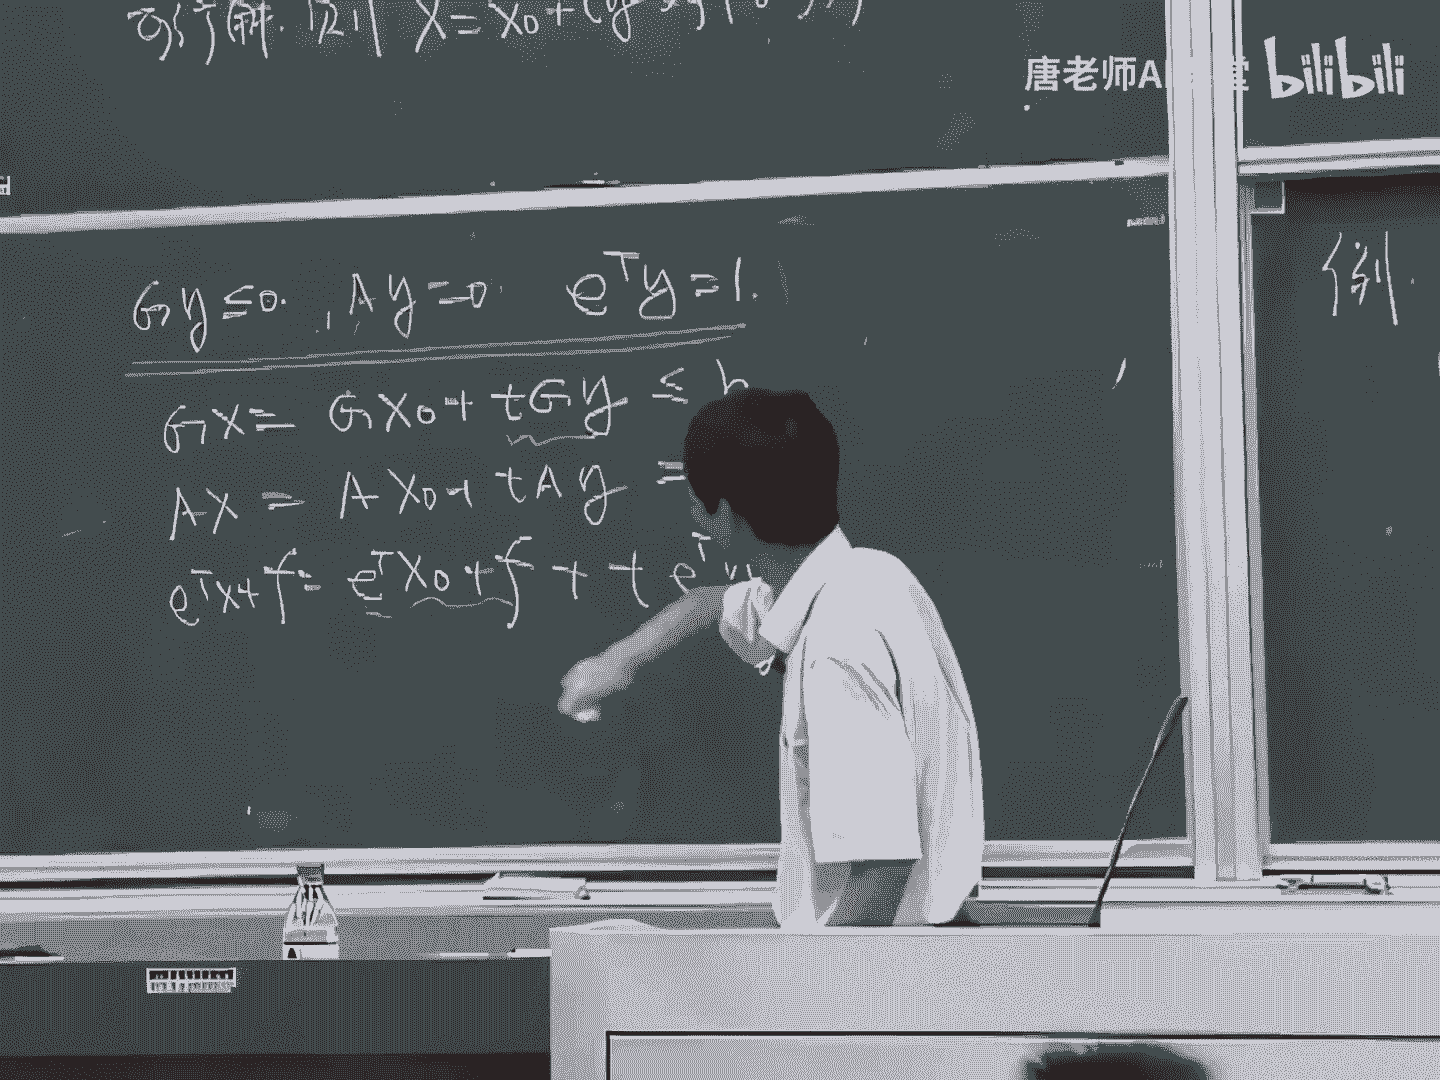 可行解. 则 X = X0 +
唐老师A 堂 bilibili
Gy ≤ 0. , Ay = 0 eᵀy = 1.
例.
GX = GX0 + tGy ≤ h
AX = AX0 + tAy =
eᵀX + f = eᵀX0 + f + t eᵀy